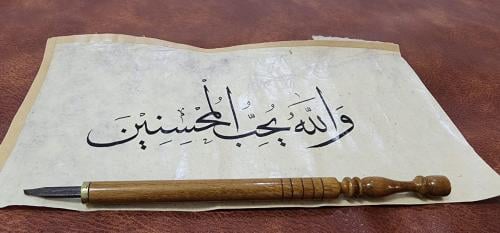 وَاللَّهُ يُحِبُّ الْمُحْسِنِينَ